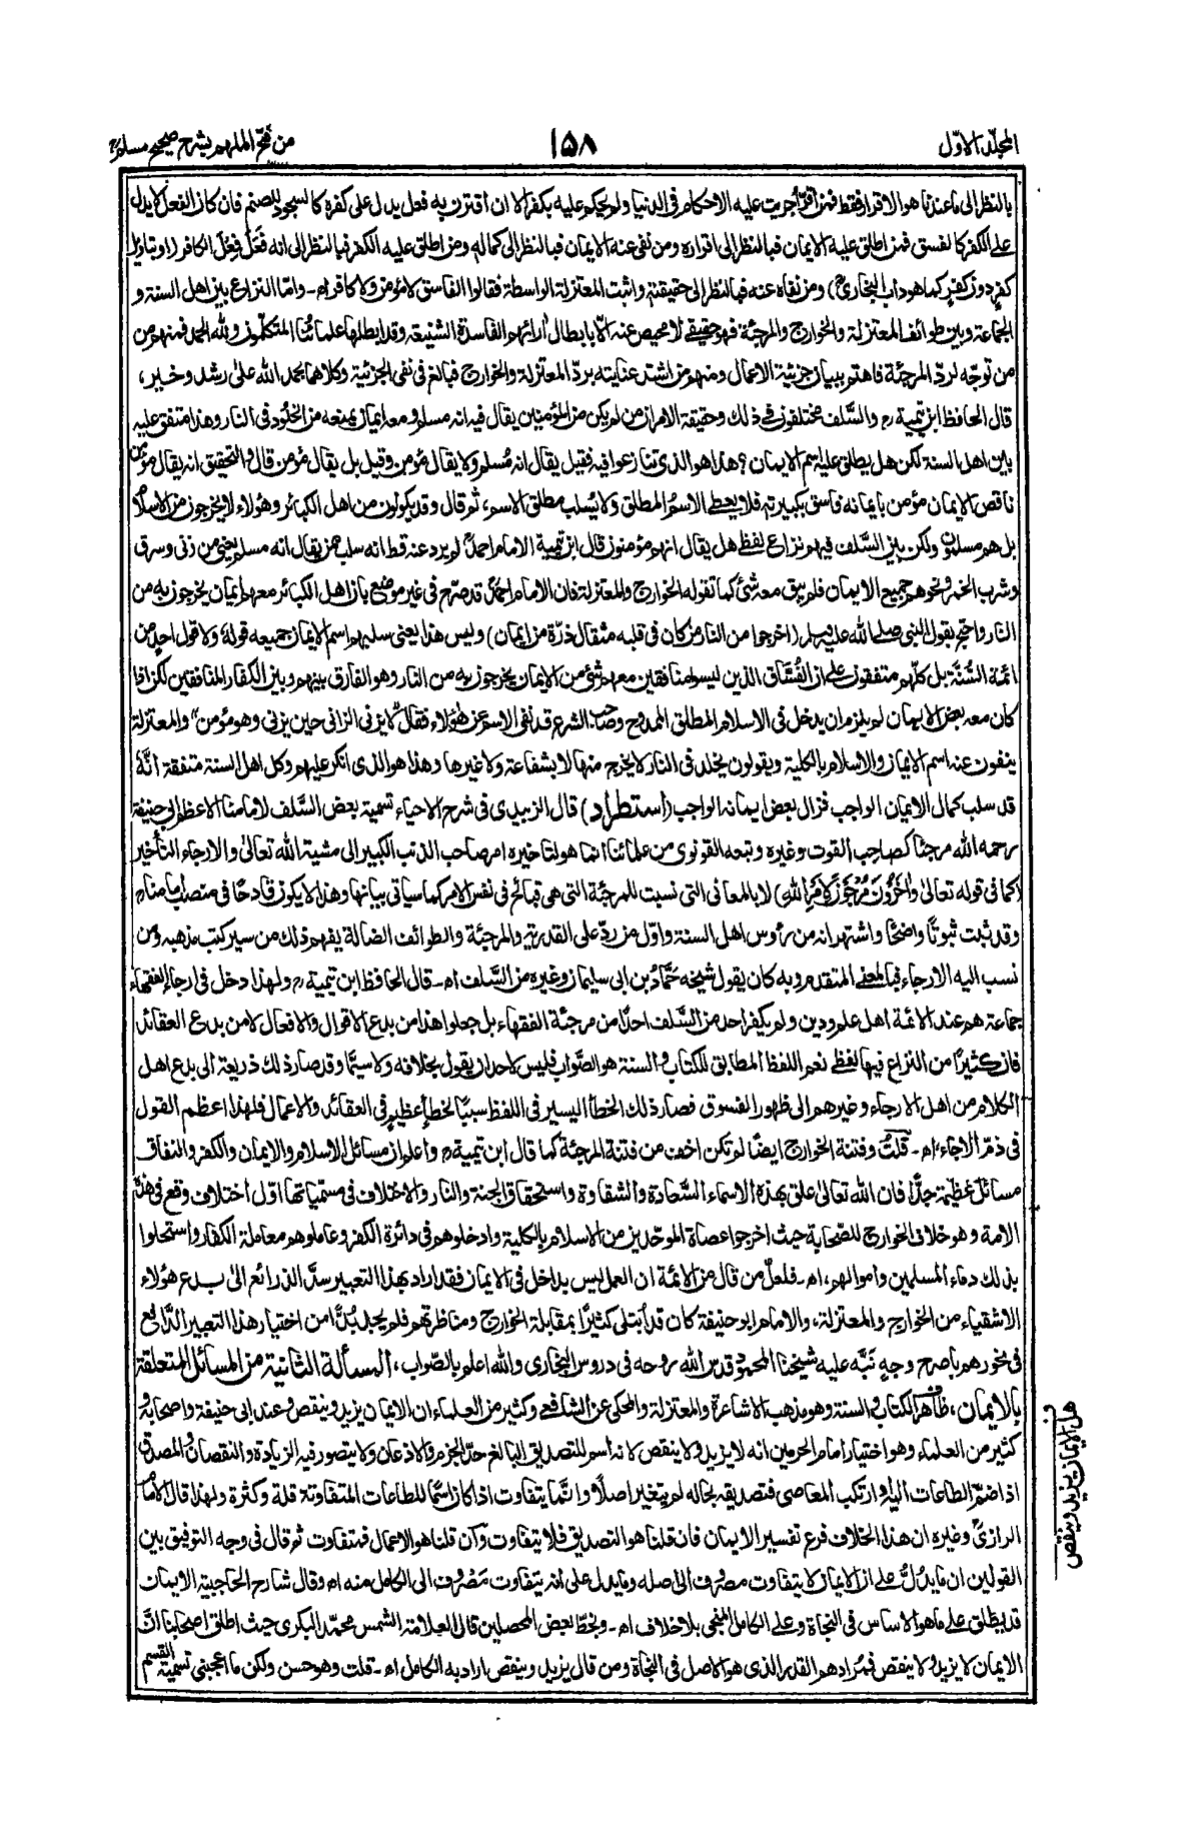 المجلد الاول
١٥٨
من فتح الملهم بشرح صحيح مسلم
بالنظر الى ما عندنا هو الاقرار فقط فمن اقرّ أجريت عليه الاحكام فى الدنيا ولم يحكم عليه بكفر الا ان اقترن به فعل يدل على كفره كالسجود للصنم فان كان الفعل لا يدل
على الكفر كالفسق فمن اطلق عليه الايمان فبالنظر الى اقراره ومن نفى عنه الايمان فبالنظر الى كماله ومن اطلق عليه الكفر فبالنظر الى انه فَعَلَ فِعلَ الكافر (او بتاويل
كفر دون كفر كما هو داب البخارى) ومن نفاه عنه فبالنظر الى حقيقته واثبت المعتزلة الواسطة فقالوا الفاسق لا مؤمن ولا كافر اه۔ وامّا النزاع بين اهل السنة و
الجماعة وبين طوائف المعتزلة والخوارج والمرجئة فهو حقيقي لا محيص عنه الّا بابطال آرائهم الفاسدة الشنيعة وقد ابطلها علمائنا المتكلمون ولله الحمد فمنهم من
من توجّه لردّ المرجئة فاهتم ببيان جزئية الاعمال ومنهم من اشتد عنايته بردّ المعتزلة والخوارج فبالغ فى نفى الجزئية وكلاهما بحمد الله على رشد وخير،
قال الحافظ ابن تيمية رح والسّلف مختلفون فى ذلك وحقيقة الامر ان من لم يكن من المؤمنين يقال فيه انه مسلم ومعه ايمان يمنعه من الخلود فى النار وهذا متفق عليه
بين اهل السنة لكن هل يطلق عليه اسم الايمان؟ هذا هو الذى تنازعوا فيه فقيل يقال انه مُسلم ولا يقال مؤمن وقيل بل يقال مؤمن قال والتحقيق انه يقال مؤمن
ناقص الايمان مؤمن بايمانه فاسق بكبيرته فلا يعطى الاسم المطلق ولا يُسلب مطلق الاسم، ثم قال وقد يكونون من اهل الكبائر وهؤلاء لا يخرجون من الاسلام
بل هم مسلمون ولكن بين السّلف فيهم نزاع لفظى هل يقال انهم مؤمنون قال ابن تيمية الامام احمد لم يرد عنه قط انه سلب من يقال انه مسلم يعنى من زنى وسرق
وشرب الخمر ونحوهم جميع الايمان فلم يبق معه شئ كما تقوله الخوارج والمعتزلة فان الامام احمد قد صرّح فى غير موضع بان اهل الكبائر معهم ايمان يخرجون به من
النار واحتج بقول النبى صلى الله عليه وسلم (اخرجوا من النار من كان فى قلبه مثقال ذرّة من ايمان) وليس هذا يعنى سلبهم اسم الايمان جميعه قوله ولا قول احد من
ائمة السُّنَّة بل كلهم متفقون على ان الفُسَّاق الذين ليسوا منافقين معهم شئ من الايمان يخرجون به من النار وهو الفارق بينهم وبين الكفار المنافقين لكن اذا
كان معه بعض الايمان لم يلزم ان يدخل فى الاسلام المطلق الممدوح وصاحب الشرع قد نفى الاسم عن هؤلاء فقال "لا يزنى الزانى حين يزنى وهو مؤمن" والمعتزلة
ينفون عنه اسم الايمان والاسلام بالكلية ويقولون يخلد فى النار لا يخرج منها لا بشفاعة ولا غيرها وهذا هو الذى انكر عليهم وكل اهل السنة متفقة انّهُ
قد سلب كمال الايمان الواجب فزال بعض ايمانه الواجب (استطراد) قال الزبيدى فى شرح الاحياء تسمية بعض السّلف لامامنا الاعظم ابى حنيفة
رحمه الله مرجئا كصاحب القوت وغيره وتبعه القونوى من علمائنا انما هو لتأخيره امر صاحب الذنب الكبير الى مشية الله تعالى والارجاء التأخير
(كما فى قوله تعالى وَآخَرُونَ مُرْجَوْنَ لِأَمْرِ اللهِ) لا بالمعانى التى نسبت للمرجئة التى هى قبائح فى نفس الامر كما سياتى بيانها وهذا لا يكون قادحا فى منصب امامنا
وقد ثبت ثبوتًا واضحًا واشتهر انه من رؤس اهل السنة واوّل من ردّ على القدرية والمرجئة والطوائف الضالة يفهم ذلك من سير كتب مذهبه ومن
نسب اليه الارجاء فبالمعنى المتقدم وبه كان يقول شيخه حمّاد بن ابى سليمان وغيره من السّلف اه۔ قال الحافظ ابن تيمية رح ولهذا دخل فى ارجاء الفقهاء
جماعة هم عند الائمة اهل علم ودين ولم يكفر احد من السّلف احدًا من مرجئة الفقهاء بل جعلوا هذا من بدع الاقوال والافعال لا من بدع العقائد
فان كثيرًا من النزاع فيها لفظى نعم اللفظ المطابق للكتاب والسنة هو الصّواب فليس لاحد ان يقول بخلافه ولا سيّما وقد صار ذلك ذريعة الى بدع اهل
الكلام من اهل الارجاء وغيرهم الى ظهور الفسوق فصار ذلك الخطأ اليسير فى اللفظ سببًا لخطأ عظيم فى العقائد والاعمال فلهذا اعظم القول
فى ذمّ الارجاء اه۔ قلتُ وفتنة الخوارج ايضًا لم تكن اخف من فتنة المرجئة كما قال ابن تيمية رح واعلم ان مسائل الاسلام والايمان والكفر والنفاق
مسائل عظيمة جدًّا فان الله تعالى علق بهذه الاسماء السّعادة والشقاوة واستحقاق الجنة والنار والاختلاف فى مسمياتها اوّل اختلاف وقع فى هذه
الامة وهو خلاف الخوارج للصّحابة حيث اخرجوا عصاة الموحّدين من الاسلام بالكلية وادخلوهم فى دائرة الكفر وعاملوهم معاملة الكفار واستحلوا
بذلك دماء المسلمين واموالهم، اه۔ فلعل من قال من الائمة ان العمل ليس بداخل فى الايمان فقد اراد بهذا التعبير سدّ الذرائع الى بدع هؤلاء
الاشقياء من الخوارج والمعتزلة، والامام ابو حنيفة كان قد أبتلى كثيرًا بمقابلة الخوارج ومناظرتهم فلم يجد بُدًّا من اختيار هذا التعبير الدّافع
فى نحورهم باصرح وجهٍ نَبَّه عليه شيخنا المحمود قدس الله روحه فى دروس البخارى والله اعلم بالصّواب، المسألة الثانية من المسائل المتعلقة
بالايمان، ظاهر الكتاب والسنة وهو مذهب الاشاعرة والمعتزلة والمحكى عن الشافعى وكثير من العلماء ان الايمان يزيد وينقص وعند ابى حنيفة واصحابه و
كثير من العلماء وهو اختيار امام الحرمين انه لا يزيد ولا ينقص لانه اسم للتصديق البالغ حدّ الجزم والاذعان ولا يتصور فيه الزيادة والنقصان والمصدق
اذا ضمّ الطاعات اليه او ارتكب المعاصى فتصديقه بحاله لم يتغير اصلًا وانّما يتفاوت اذا كان اسمًا للطاعات المتفاوتة قلة وكثرة ولهذا قال الامام
الرازى وغيره ان هذا الخلاف فرع تفسير الايمان فان قلنا هو التصديق فلا يتفاوت وان قلنا هو الاعمال فمتفاوت ثم قال فى وجه التوفيق بين
القولين ان ما يدلّ على ان الايمان لا يتفاوت مصروف الى اصله وما يدل على انه يتفاوت مصروف الى الكامل منه اه وقال شارح الحاجبية الايمان
قد يطلق على ما هو الاساس فى النجاة وعلى الكامل المنجى بلا خلاف اه۔ وبخطّ بعض المحصلين قال العلامة الشمس محمّد البكرى حيث اطلق اصحابنا انّ
الايمان لا يزيد ولا ينقص فمرادهم القدر الذى هو الاصل فى النجاة ومن قال يزيد وينقص اراد به الكامل اه۔ قلت وهو حسن ولكن ما اعجبنى تسمية القسم
هل الايمان يزيد وينقص